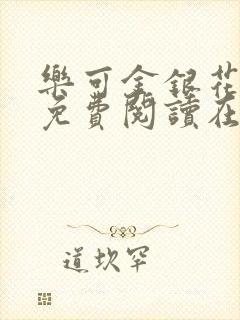 樂可金銀花
免費閱讀在
道坎罕